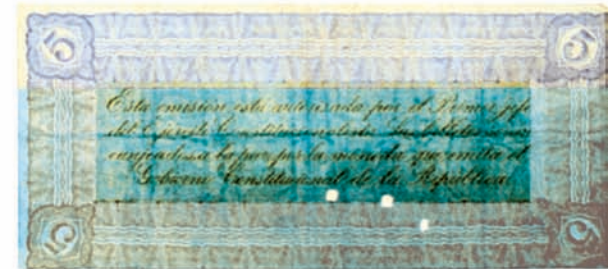 5 5
Esta emisión está autorizada por el Primer jefe
del Ejército Constitucionalista. Los billetes serán
canjeados a la par por la moneda que emita el
Gobierno Constitucional de la República
5 5